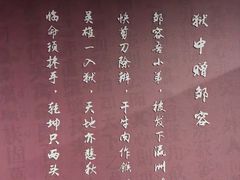 狱中赠邹容
邹容吾小弟，被发下瀛洲。
快剪刀除辫，干牛肉作糇。
英雄一入狱，天地亦悲秋。
临命须掺手，乾坤只两头。